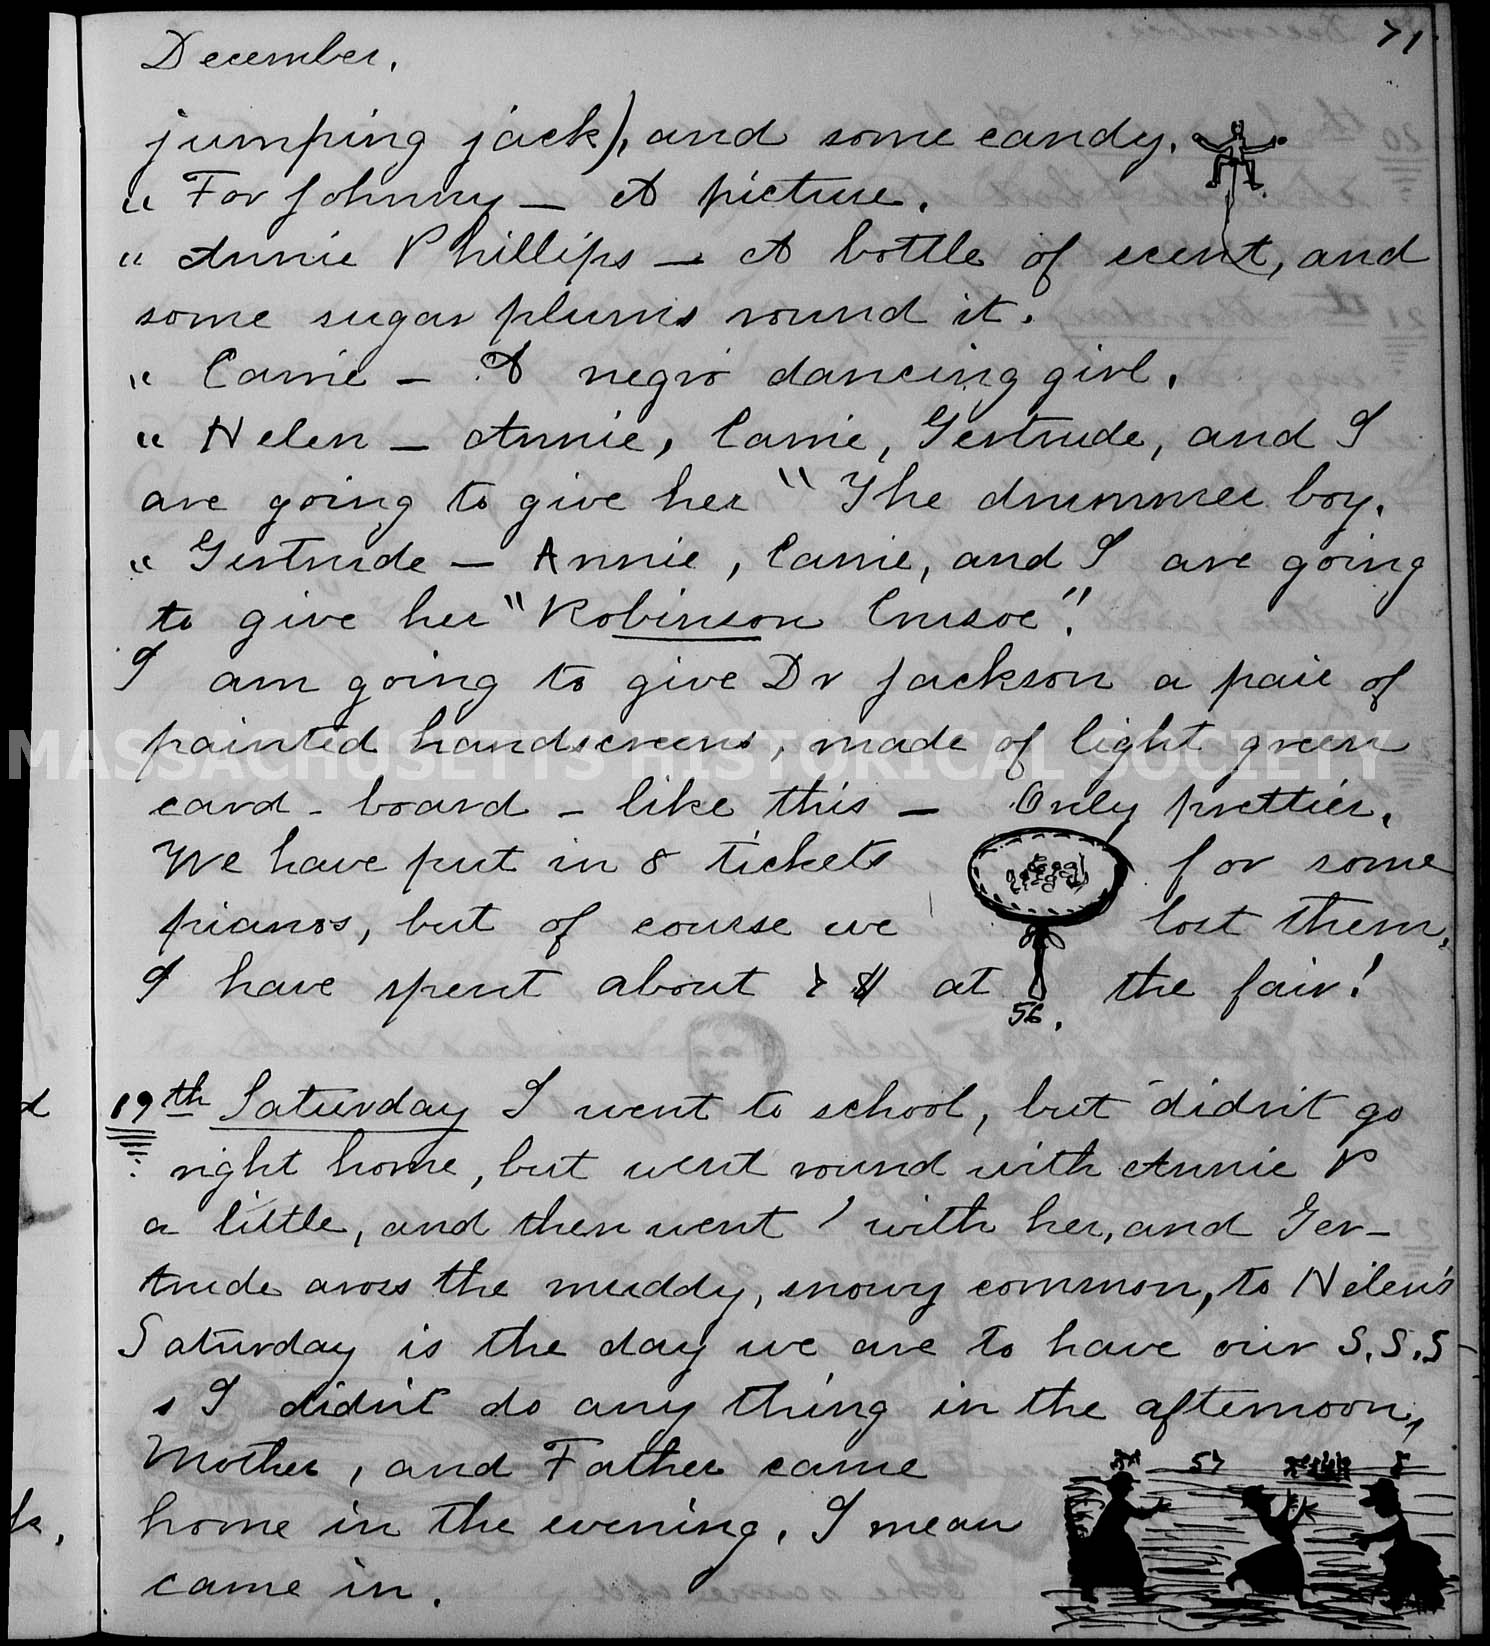 December. 71.
jumping jack), and some candy.
" For Johnny – A picture.
" Annie Phillips – A bottle of scent, and
some sugar plums round it.
" Carrie – A negro dancing girl.
" Helen – Annie, Carrie, Gertrude, and I
are going to give her " The drummer boy.
" Gertrude – Annie, Carrie, and I are going
to give her "Robinson Crusoe".
I am going to give Dr Jackson a pair of
painted handscreens, made of light green
MASSACHUSETTS HISTORICAL SOCIETY
card-board – like this – Only prettier.
We have put in 8 tickets for some
pianos, but of course we lost them.
I have spent about 7 $ at the fair!
56.
19th Saturday I went to school, but didn't go
right home, but went round with Annie P
a little, and then went with her, and Ger-
trude aross the muddy, snowy common, to Helen's
Saturday is the day we are to have our S.S.S
s I didn't do any thing in the afternoon,
Mother, and Father came
57
home in the evening. I mean
came in.